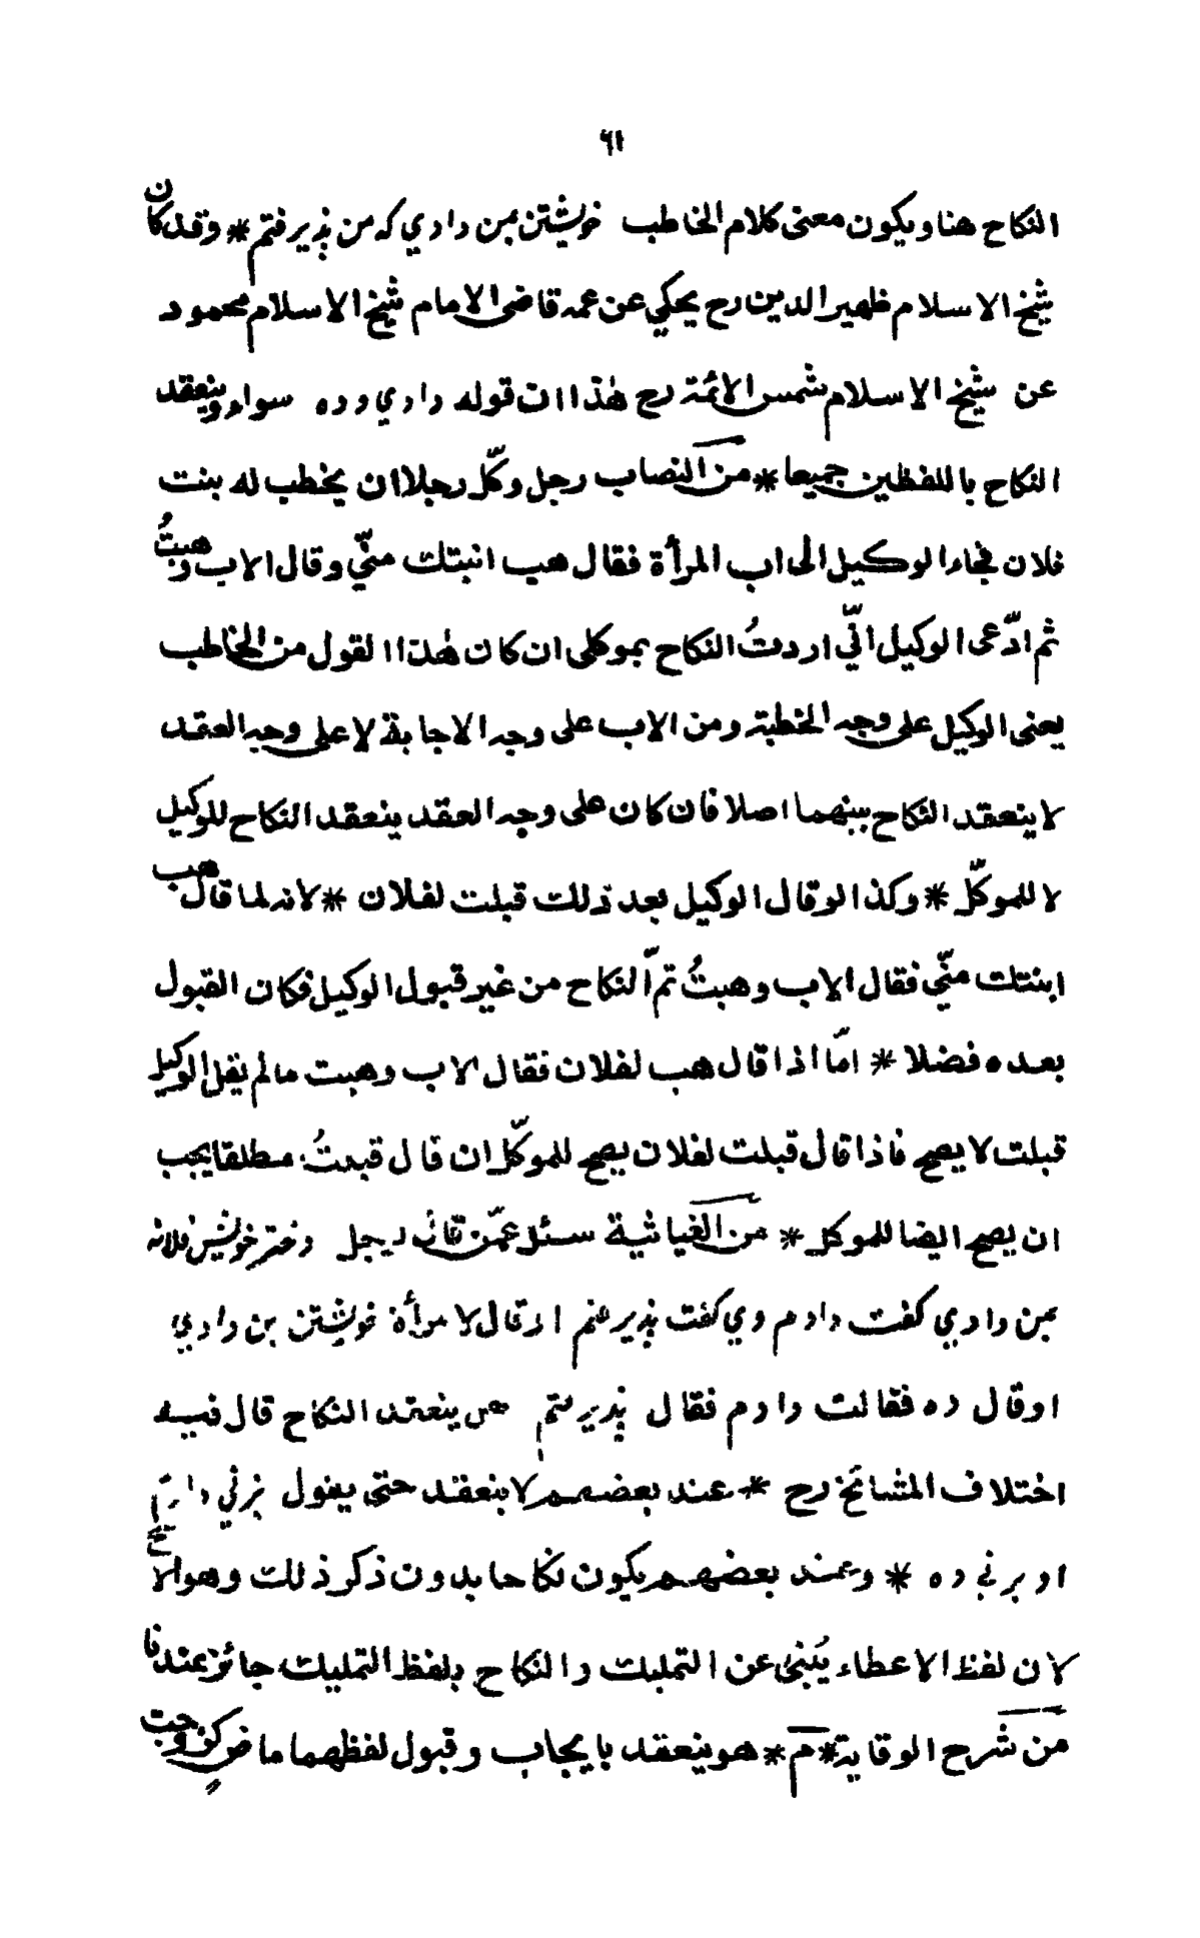 ٦١
النكاح هنا ويكون معنى كلام الخاطب خويشتن بمن دادي كه من پذيرفتم * وقد كان
شيخ الاسلام ظهير الدين رح يحكي عن عمه قاضى الامام شيخ الاسلام محمود
عن شيخ الاسلام شمس الائمة رح هٰذا ان قوله دادي وده سواء وينعقد
النكاح باللفظين جميعا * من النصاب رجل وكّل رجلا ان يخطب له بنت
فلان فجاء الوكيل الى اب المرأة فقال هب ابنتك منّي وقال الاب وهبتُ
ثم ادّعى الوكيل انّي اردتُ النكاح بموكلى ان كان هٰذا القول من الخاطب
يعنى الوكيل على وجه الخطبة ومن الاب على وجه الاجابة لا على وجه العقد
لا ينعقد النكاح بينهما اصلا فان كان على وجه العقد ينعقد النكاح للوكيل
لا للموكّل * وكذا لو قال الوكيل بعد ذلك قبلت لفلان * لانه لما قال هب
ابنتك منّي فقال الاب وهبتُ تمّ النكاح من غير قبول الوكيل فكان القبول
بعده فضلا * امّا اذا قال هب لفلان فقال الاب وهبت ما لم يقل الوكيل
قبلت لا يصح فاذا قال قبلت لفلان يصح للموكّل ان قال قبلتُ مطلقا يجب
ان يصح ايضا للموكل * من الغياثية سئل عمّن قال لرجل دختر خويش فلانه
بمن دادي كفت دادم وي كفت پذيرفتم او قال لامرأة خويشتن بمن دادي
او قال ده فقالت دادم فقال پذيرفتم هل ينعقد النكاح قال فيه
اختلاف المشائخ رح * عند بعضهم لا ينعقد حتى يقول بزني دادم
او بزني ده * وعند بعضهم يكون نكاحا بدون ذكر ذلك وهو الاصح
لان لفظ الاعطاء يُنبئ عن التمليك والنكاح بلفظ التمليك جائز عندنا
من شرح الوقاية * م * هو ينعقد بايجاب وقبول لفظهما ماضٍ كزوجت